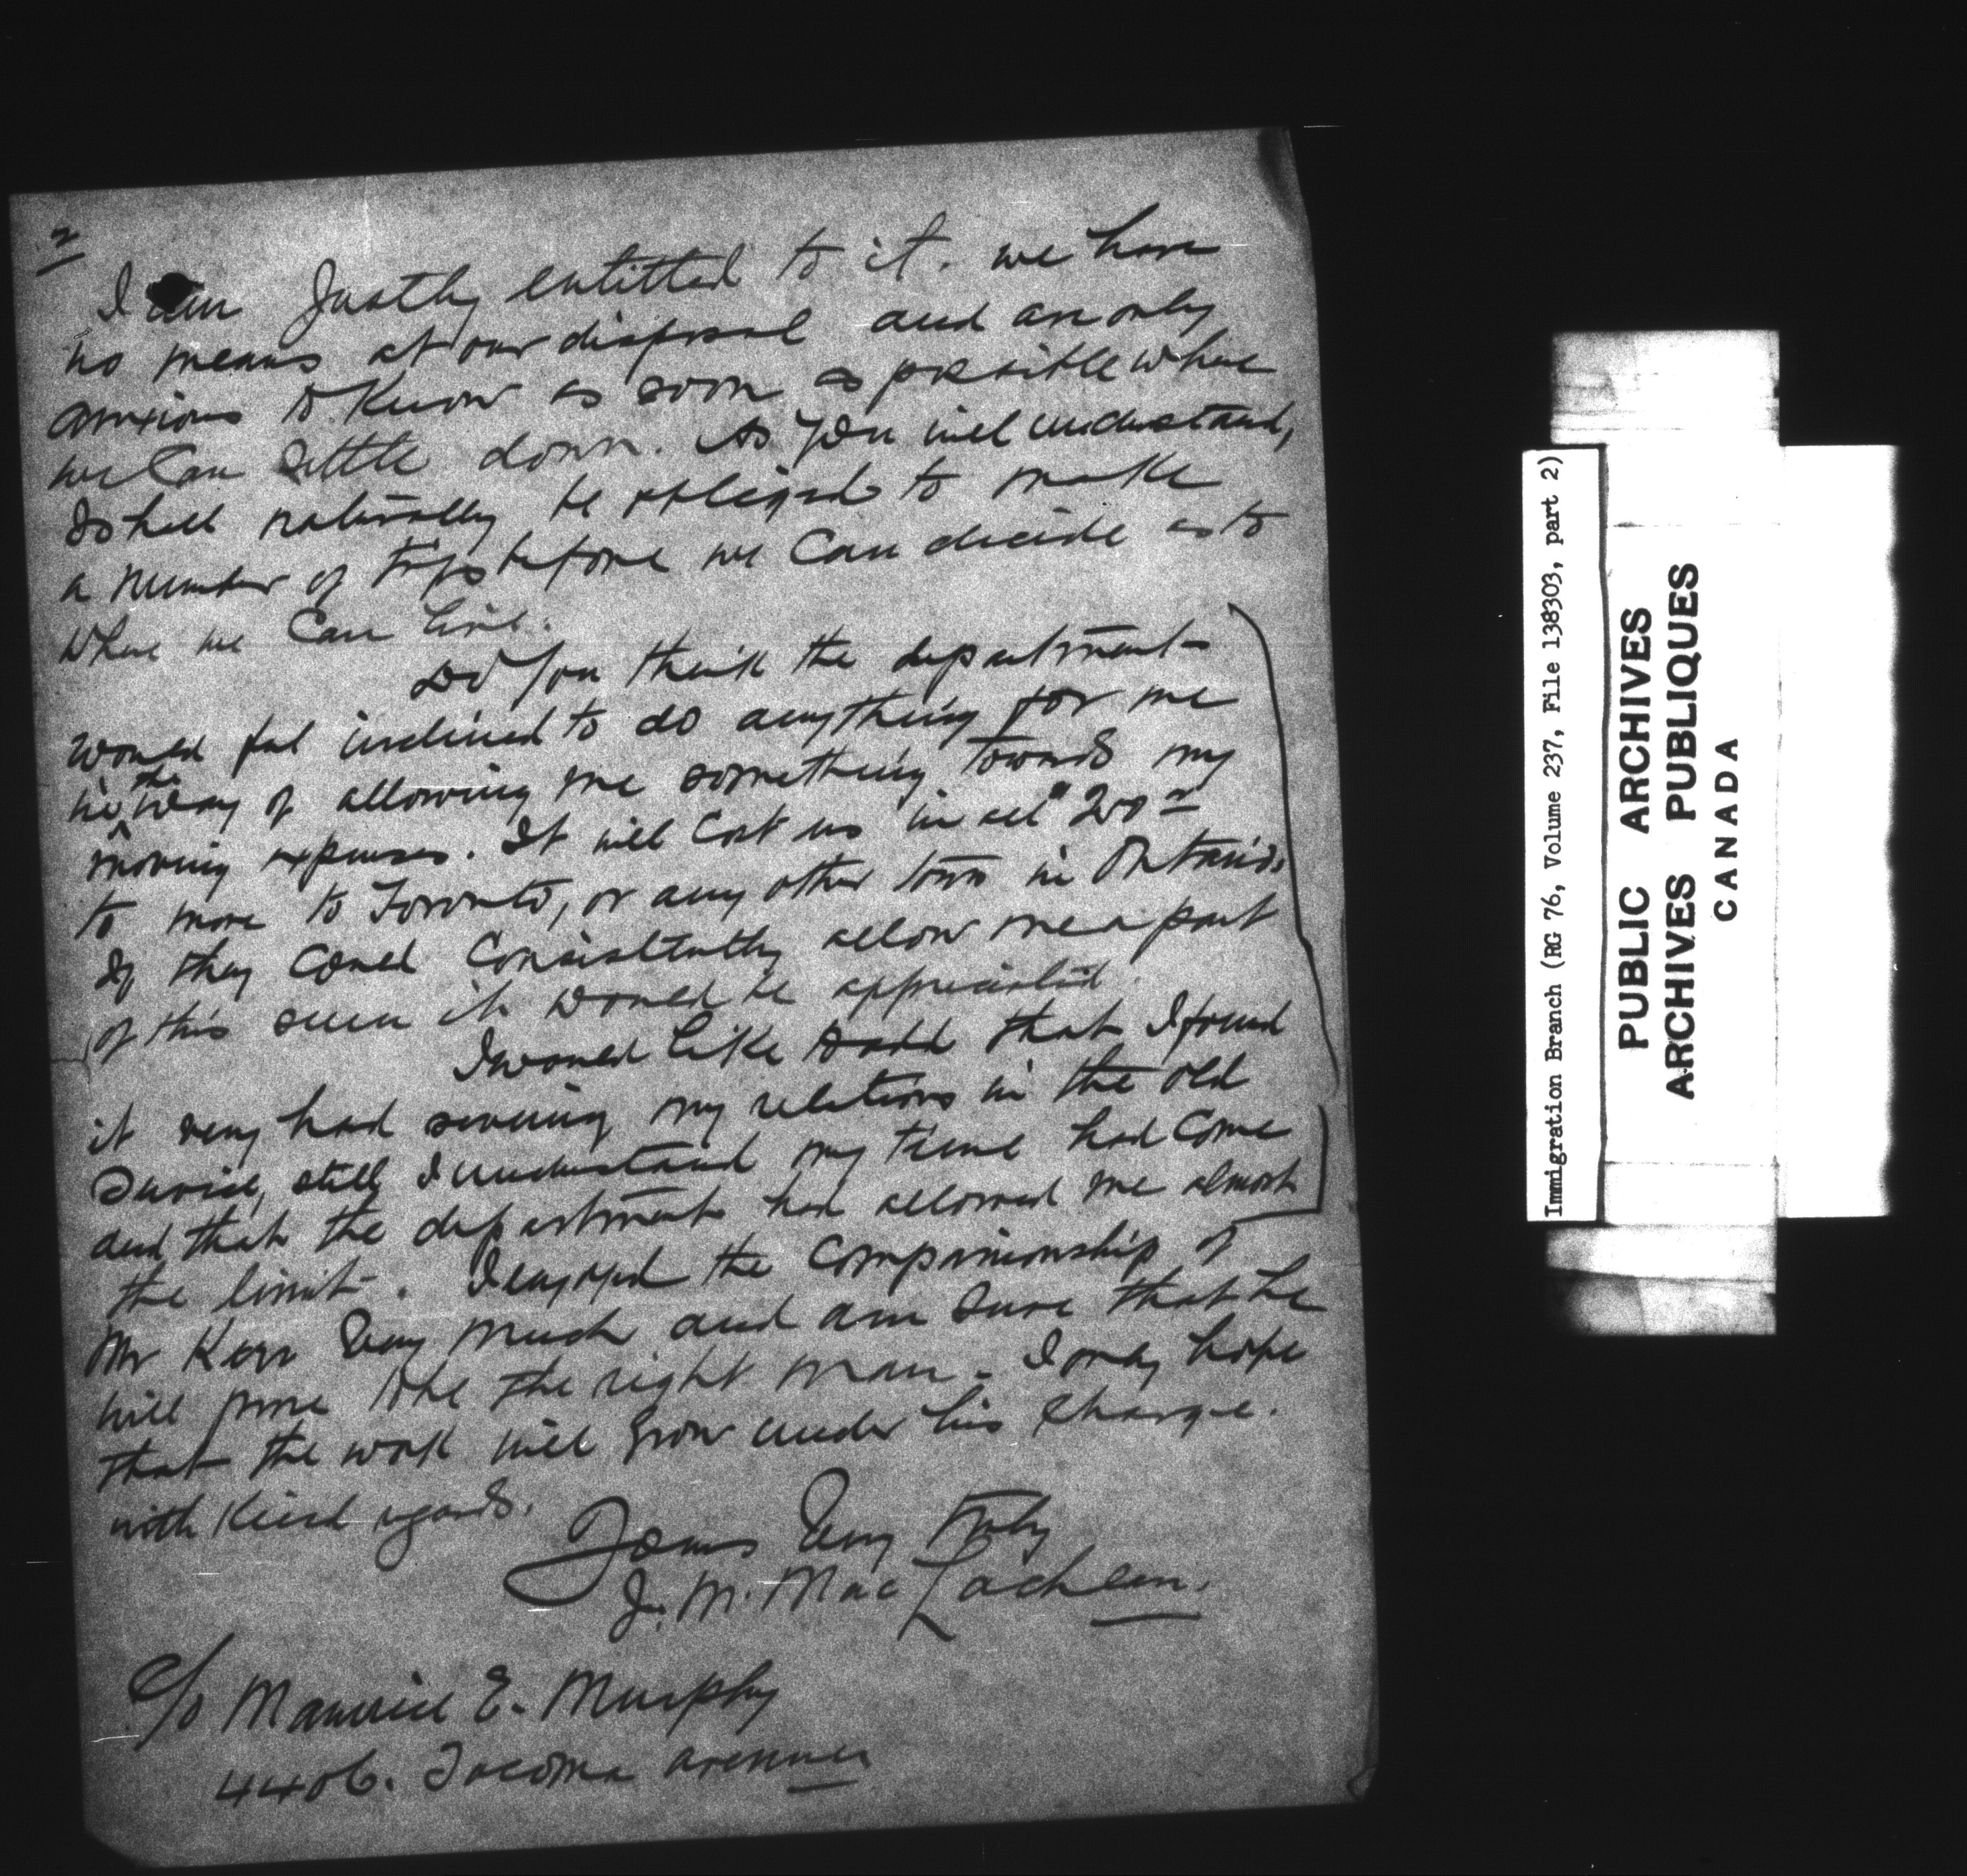 2
I am Justly entitled to it. we have
no means at our disposal and are only
anxious to Know as soon as possible where
we Can Settle down. As you will understand,
I shall naturally be obliged to make
a number of trips before we Can decide as to
where we Can live.
Do you think the department
would feel inclined to do anything for me
in the way of allowing me something towards my
moving expenses. It will Cost us "in all" 200
to move to Toronto, or any other town in Ontario.
If they Could Consistently allow me a part
of this sum it would be appreciated.
I would like to add that I found
it very hard severing my relations in the old
Service, still I understand my time had Come
and that the department had allowed me almost
the limit. I enjoyed the Companionship of
Mr Kerr Very much and am Sure that he
will prove to be the right man. I only hope
that the work will grow under his Charge.
with Kind regards.
Yours Very Truly
J. M. MacLachlan.
C/o Maurice E. Murphy
4406. Tacoma avenue
Immigration Branch (RG 76, Volume 237, File 138303, part 2)
PUBLIC ARCHIVES
ARCHIVES PUBLIQUES
CANADA